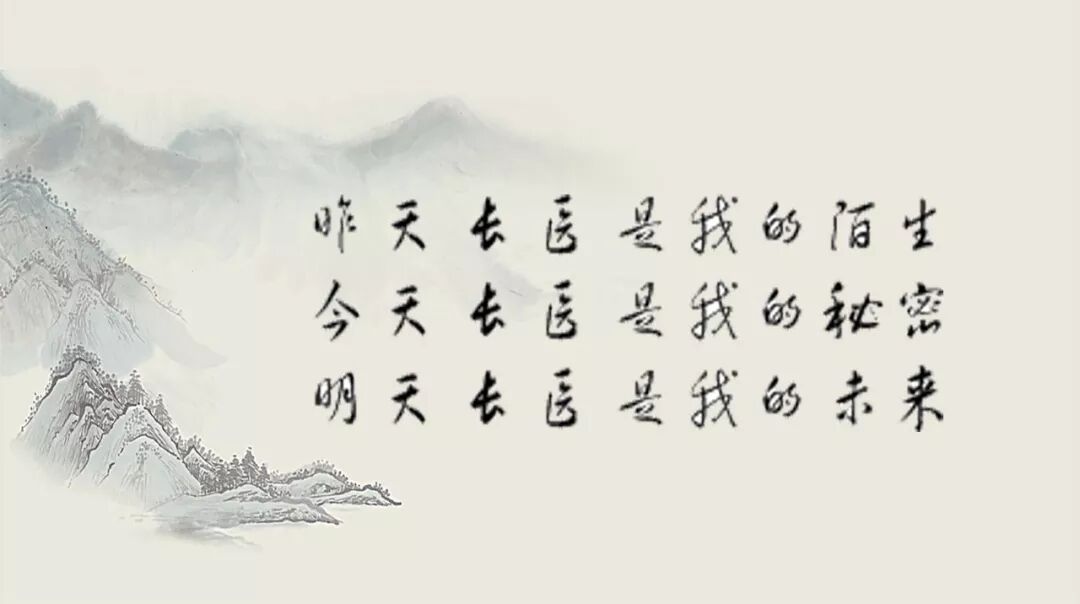 昨天长医是我的陌生
今天长医是我的秘密
明天长医是我的未来